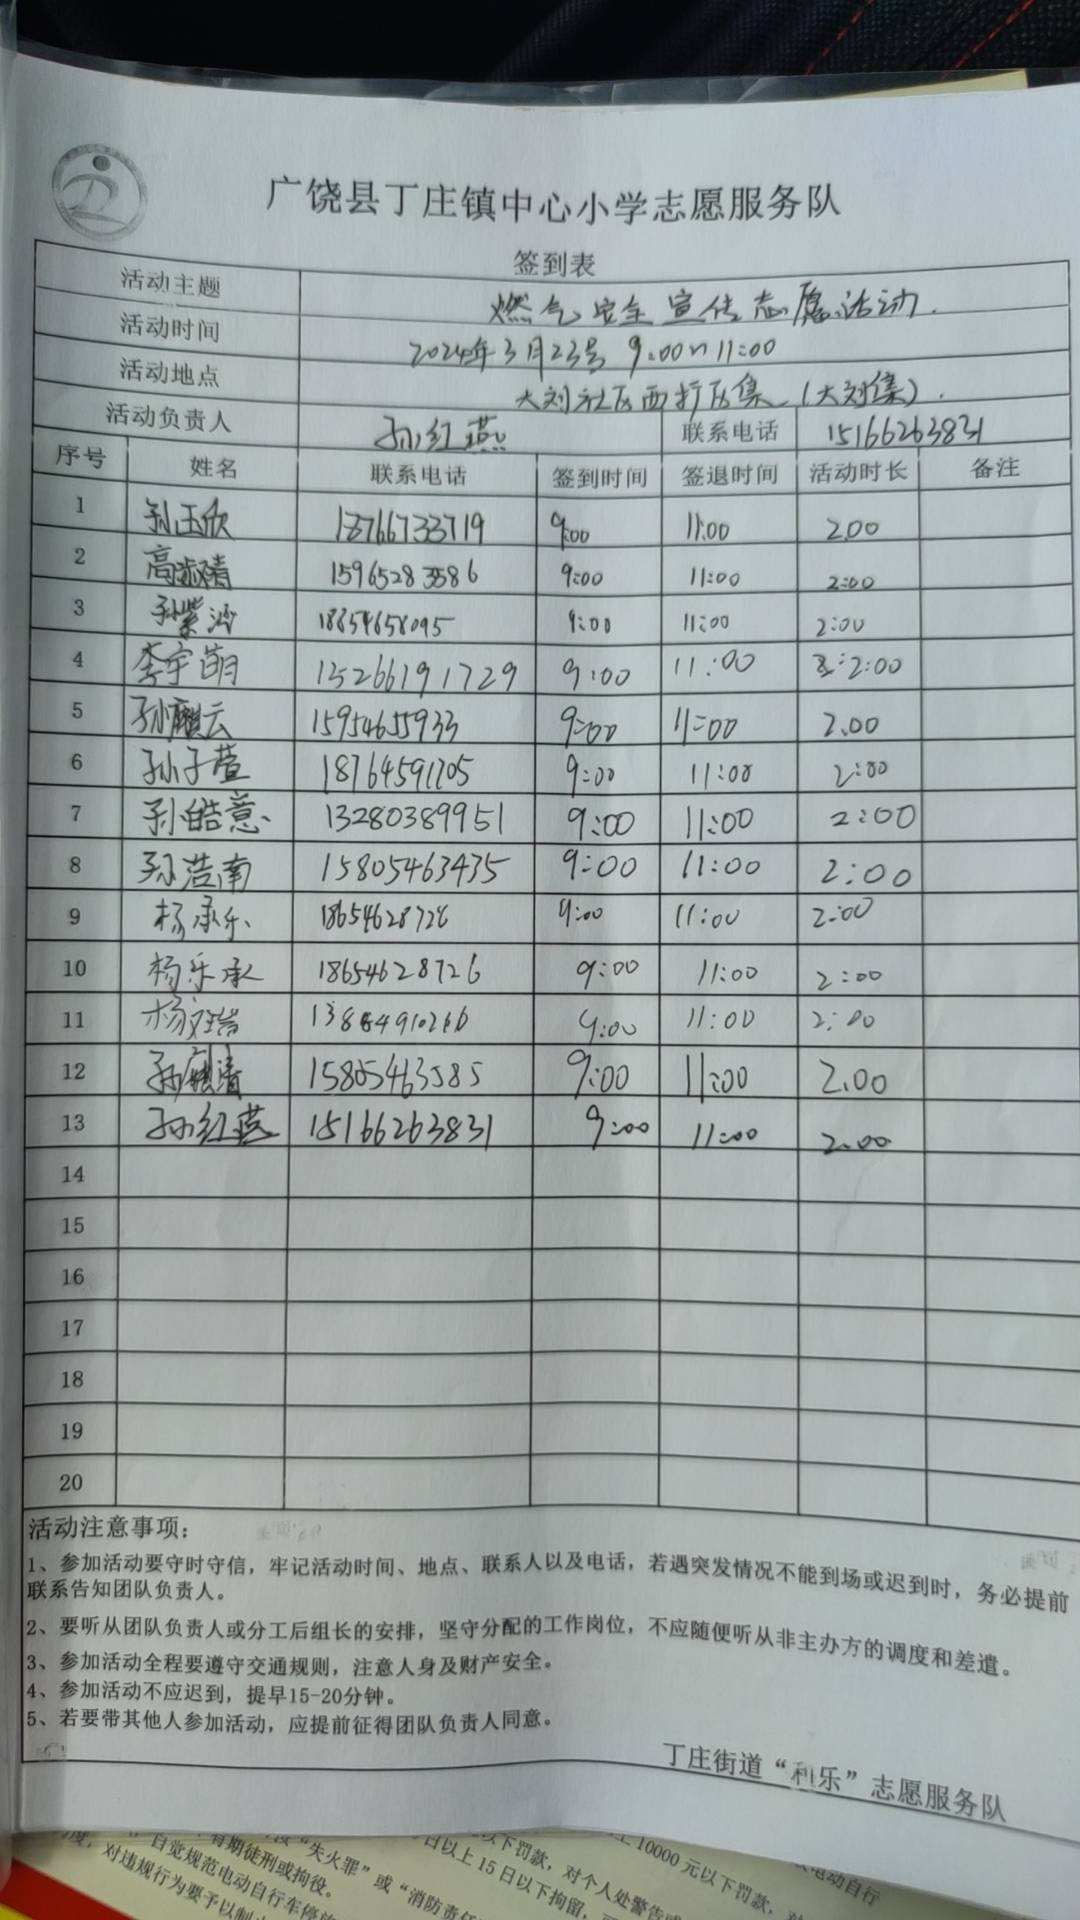 广饶县丁庄镇中心小学志愿服务队
签到表
活动主题 燃气安全宣传志愿活动.
活动时间 2024年3月23号 9:00~11:00
活动地点 大刘社区西折区集(大刘集).
活动负责人 孙红燕 联系电话 15166263831
序号 姓名 联系电话 签到时间 签退时间 活动时长 备注
1 孙玉欣 18766733719 9:00 11:00 2.00
2 高淑靖 15965283586 9:00 11:00 2:00
3 孙紫涵 18654658095 9:00 11:00 2:00
4 李宇萌 15266191729 9:00 11:00 2:00
5 孙麒云 15954655933 9:00 11:00 2.00
6 孙子萱 18764591705 9:00 11:00 2:00
7 孙皓意 13280389951 9:00 11:00 2:00
8 孙浩南 15805463435 9:00 11:00 2:00
9 杨承乐 18654628726 9:00 11:00 2:00
10 杨乐承 18654628726 9:00 11:00 2:00
11 杨 9:00 11:00 2:00
12 孙麒 15805463585 9:00 11:00 2.00
13 孙红燕 15166263831 9:00 11:00 2.00
14
15
16
17
18
19
20
活动注意事项:
1、参加活动要守时守信,牢记活动时间、地点、联系人以及电话,若遇突发情况不能到场或迟到时,务必提前
联系告知团队负责人。
2、要听从团队负责人或分工后组长的安排,坚守分配的工作岗位,不应随便听从非主办方的调度和差遣。
3、参加活动全程要遵守交通规则,注意人身及财产安全。
4、参加活动不应迟到,提早15-20分钟。
5、若要带其他人参加活动,应提前征得团队负责人同意。
丁庄街道“利乐”志愿服务队
“失火罪”或“消防责任
有期徒刑或拘役。
自觉规范电动自行车停放
对违规行为要予以制
以下罚款,对个人处警告或
日以上15日以下拘留,
10000元以下罚款,对
电动自行